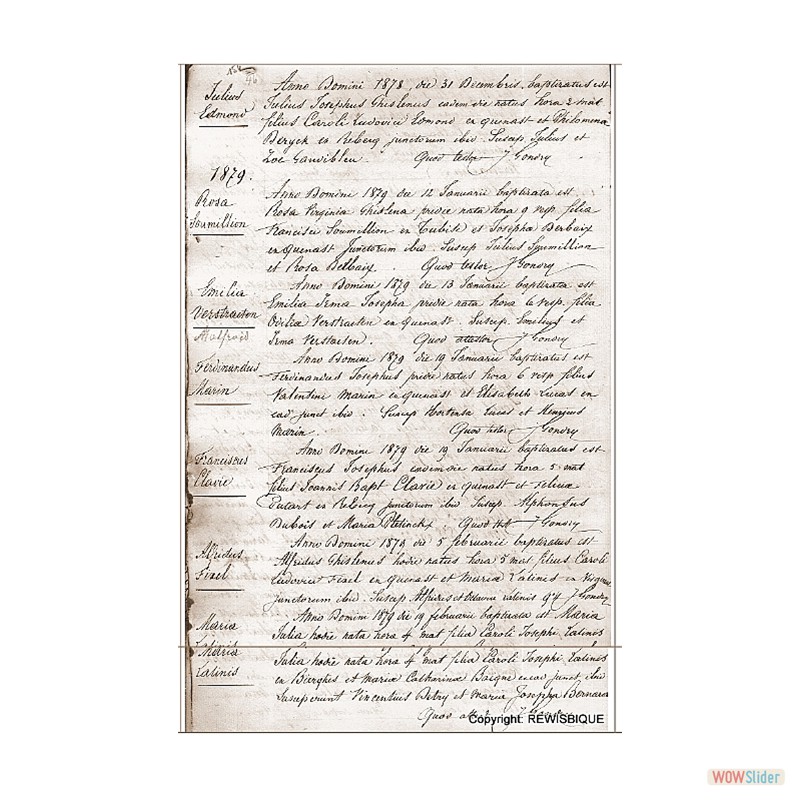 Julius
Edmond
Anno Domini 1878, die 31 Decembris, baptizatus est
Julius Josephus Ghislenus eadem die natus hora 2 mat
filius Caroli Ludovici Edmond ex quenast et Philomena
Beryck ex Rebecq junctorum ibid. Suscep. Julius et
Zoé Quod testor J Gondry
1879.
Rosa
Soumillion
Anno Domini 1879 die 12 Januarii baptizata est
Rosa Virginia Ghislena pridie nata hora 9 vesp. filia
Francisci Soumillion ex Tubize et Josepha Berbaix
ex quenast junctorum ibid. Suscep Julius Soumillion
et Rosa Quod testor J Gondry
Emilia
Verstraeten
Anno Domini 1879 die 13 Januarii baptizata est
Emilia Irma Josepha pridie nata hora 6 vesp. filia
Odilia Verstraeten ex quenast. Suscep. et
Irma Verstaeten. Quod attestor J Gondry
Ferdinandus
Marin
Anno Domini 1879 die 19 Januarii baptizatus est
Ferdinandus Josephus pridie natus hora 6 vesp filius
Valentini Marin ex quenast et Elisabeth Lucas ex
ead junct ibid. Suscep Hortensia Lucas et
Marin. Quod testor J Gondry
Franciscus
Clavie
Anno Domini 1879 die 19 Januarii baptizatus est
Franciscus Josephus eademdie natus hora 5 mat
filius Joannis Bapt Clavie ex quenast et
Dutart ex Rebecq junctorum ibid Suscep. Alphonsus
Dubois et Maria Pletinckx. Quod J Gondry
Alfridus
Fixel
Anno Domini 1879 die 5 februarii baptizatus est
Alfridus Ghislenus hodie natus hora 5 mat filius Caroli
Ludovici Fixel ex quenast et Maria Latinis ex
junctorum ibid. Suscep et Latinis J Gondry
Maria
Latinis
Anno Domini 1879 die 19 februarii baptizata est Maria
Julia hodie nata hora 4 mat filia Caroli Josephi Latinis
Julia hodie nata hora 4 mat filia Caroli Josephi Latinis
ex Bierghes et Maria Catharina Baigne ex ead junct. ibid
Susceperunt Vincentius Detry et Maria Josepha Bernard
Quod
Copyright: REWISBIQUE
WOWSlider